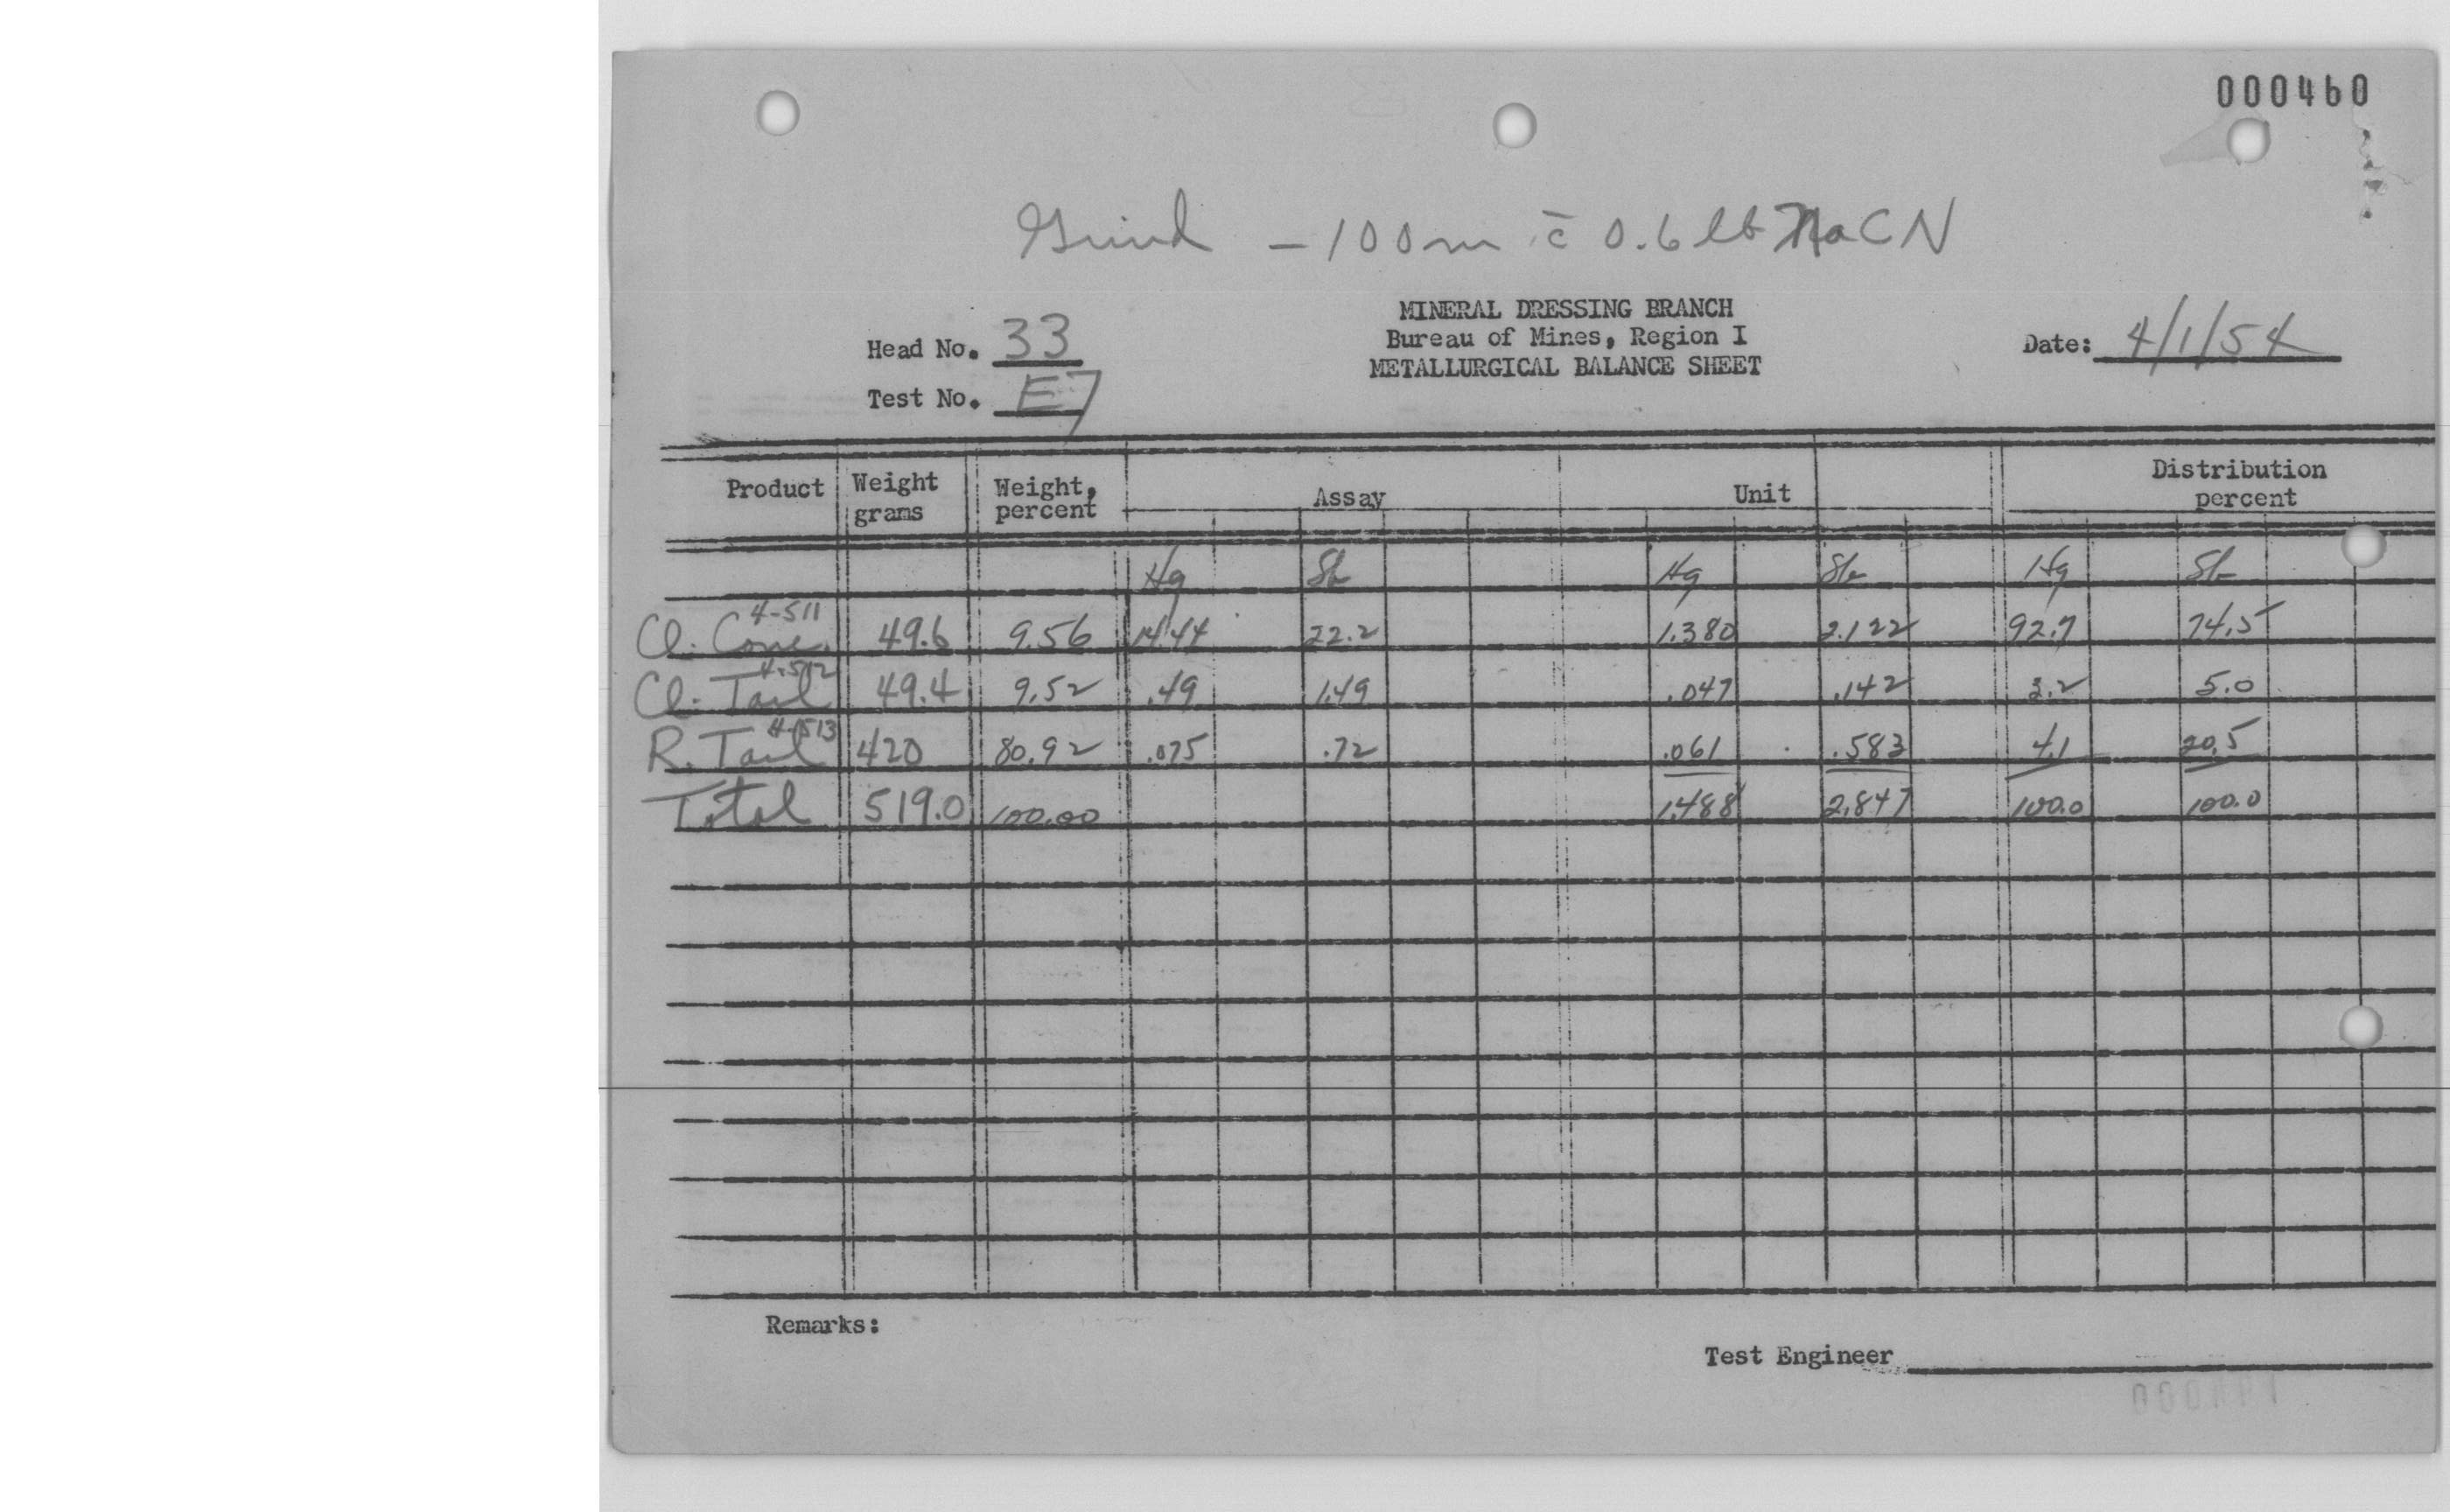 000460
Grind - 100m c̄ 0.6 lb NaCN
MINERAL DRESSING BRANCH
Bureau of Mines, Region I
METALLURGICAL BALANCE SHEET
Head No. 33
Test No. E7
Date: 4/1/54
Product Weight grams Weight, percent Assay Unit Distribution percent
Hg Sb Hg Sb Hg Sb
Cl. Conc. 4-511 49.6 9.56 14.44 22.2 1.380 2.122 92.7 74.5
Cl. Tail 4-512 49.4 9.52 .49 1.49 .047 .142 3.2 5.0
R. Tail 4-513 420 80.92 .075 .72 .061 .583 4.1 20.5
Total 519.0 100.00 1.488 2.847 100.0 100.0
Remarks:
Test Engineer